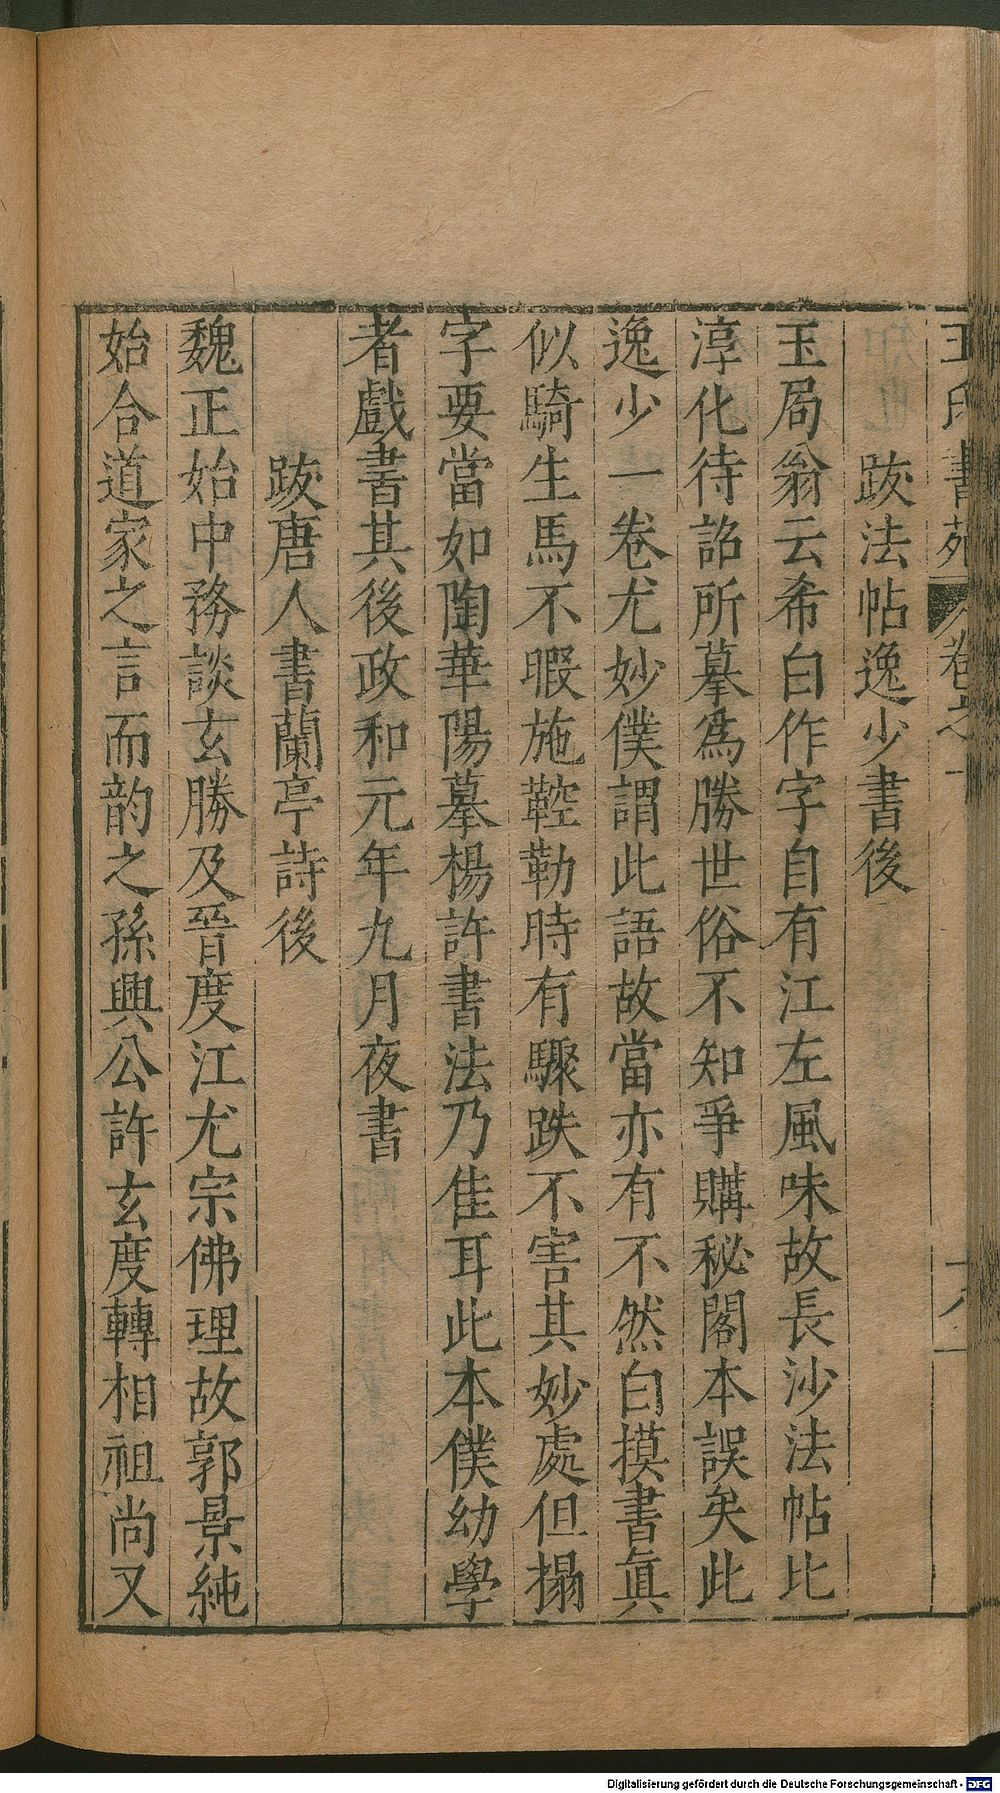 王氏書苑 卷之十
跋法帖逸少書後
玉局翁云希白作字自有江左風味故長沙法帖比
淳化待詔所摹爲勝世俗不知爭購秘閣本誤矣此
逸少一卷尤妙僕謂此語故當亦有不然白摸書眞
似騎生馬不暇施鞚勒時有驟跌不害其妙處但搨
字要當如陶華陽摹楊許書法乃佳耳此本僕幼學
者戲書其後政和元年九月夜書
跋唐人書蘭亭詩後
魏正始中務談玄勝及晉度江尤宗佛理故郭景純
始合道家之言而韵之孫興公許玄度轉相祖尚又
Digitalisierung gefördert durch die Deutsche Forschungsgemeinschaft - DFG